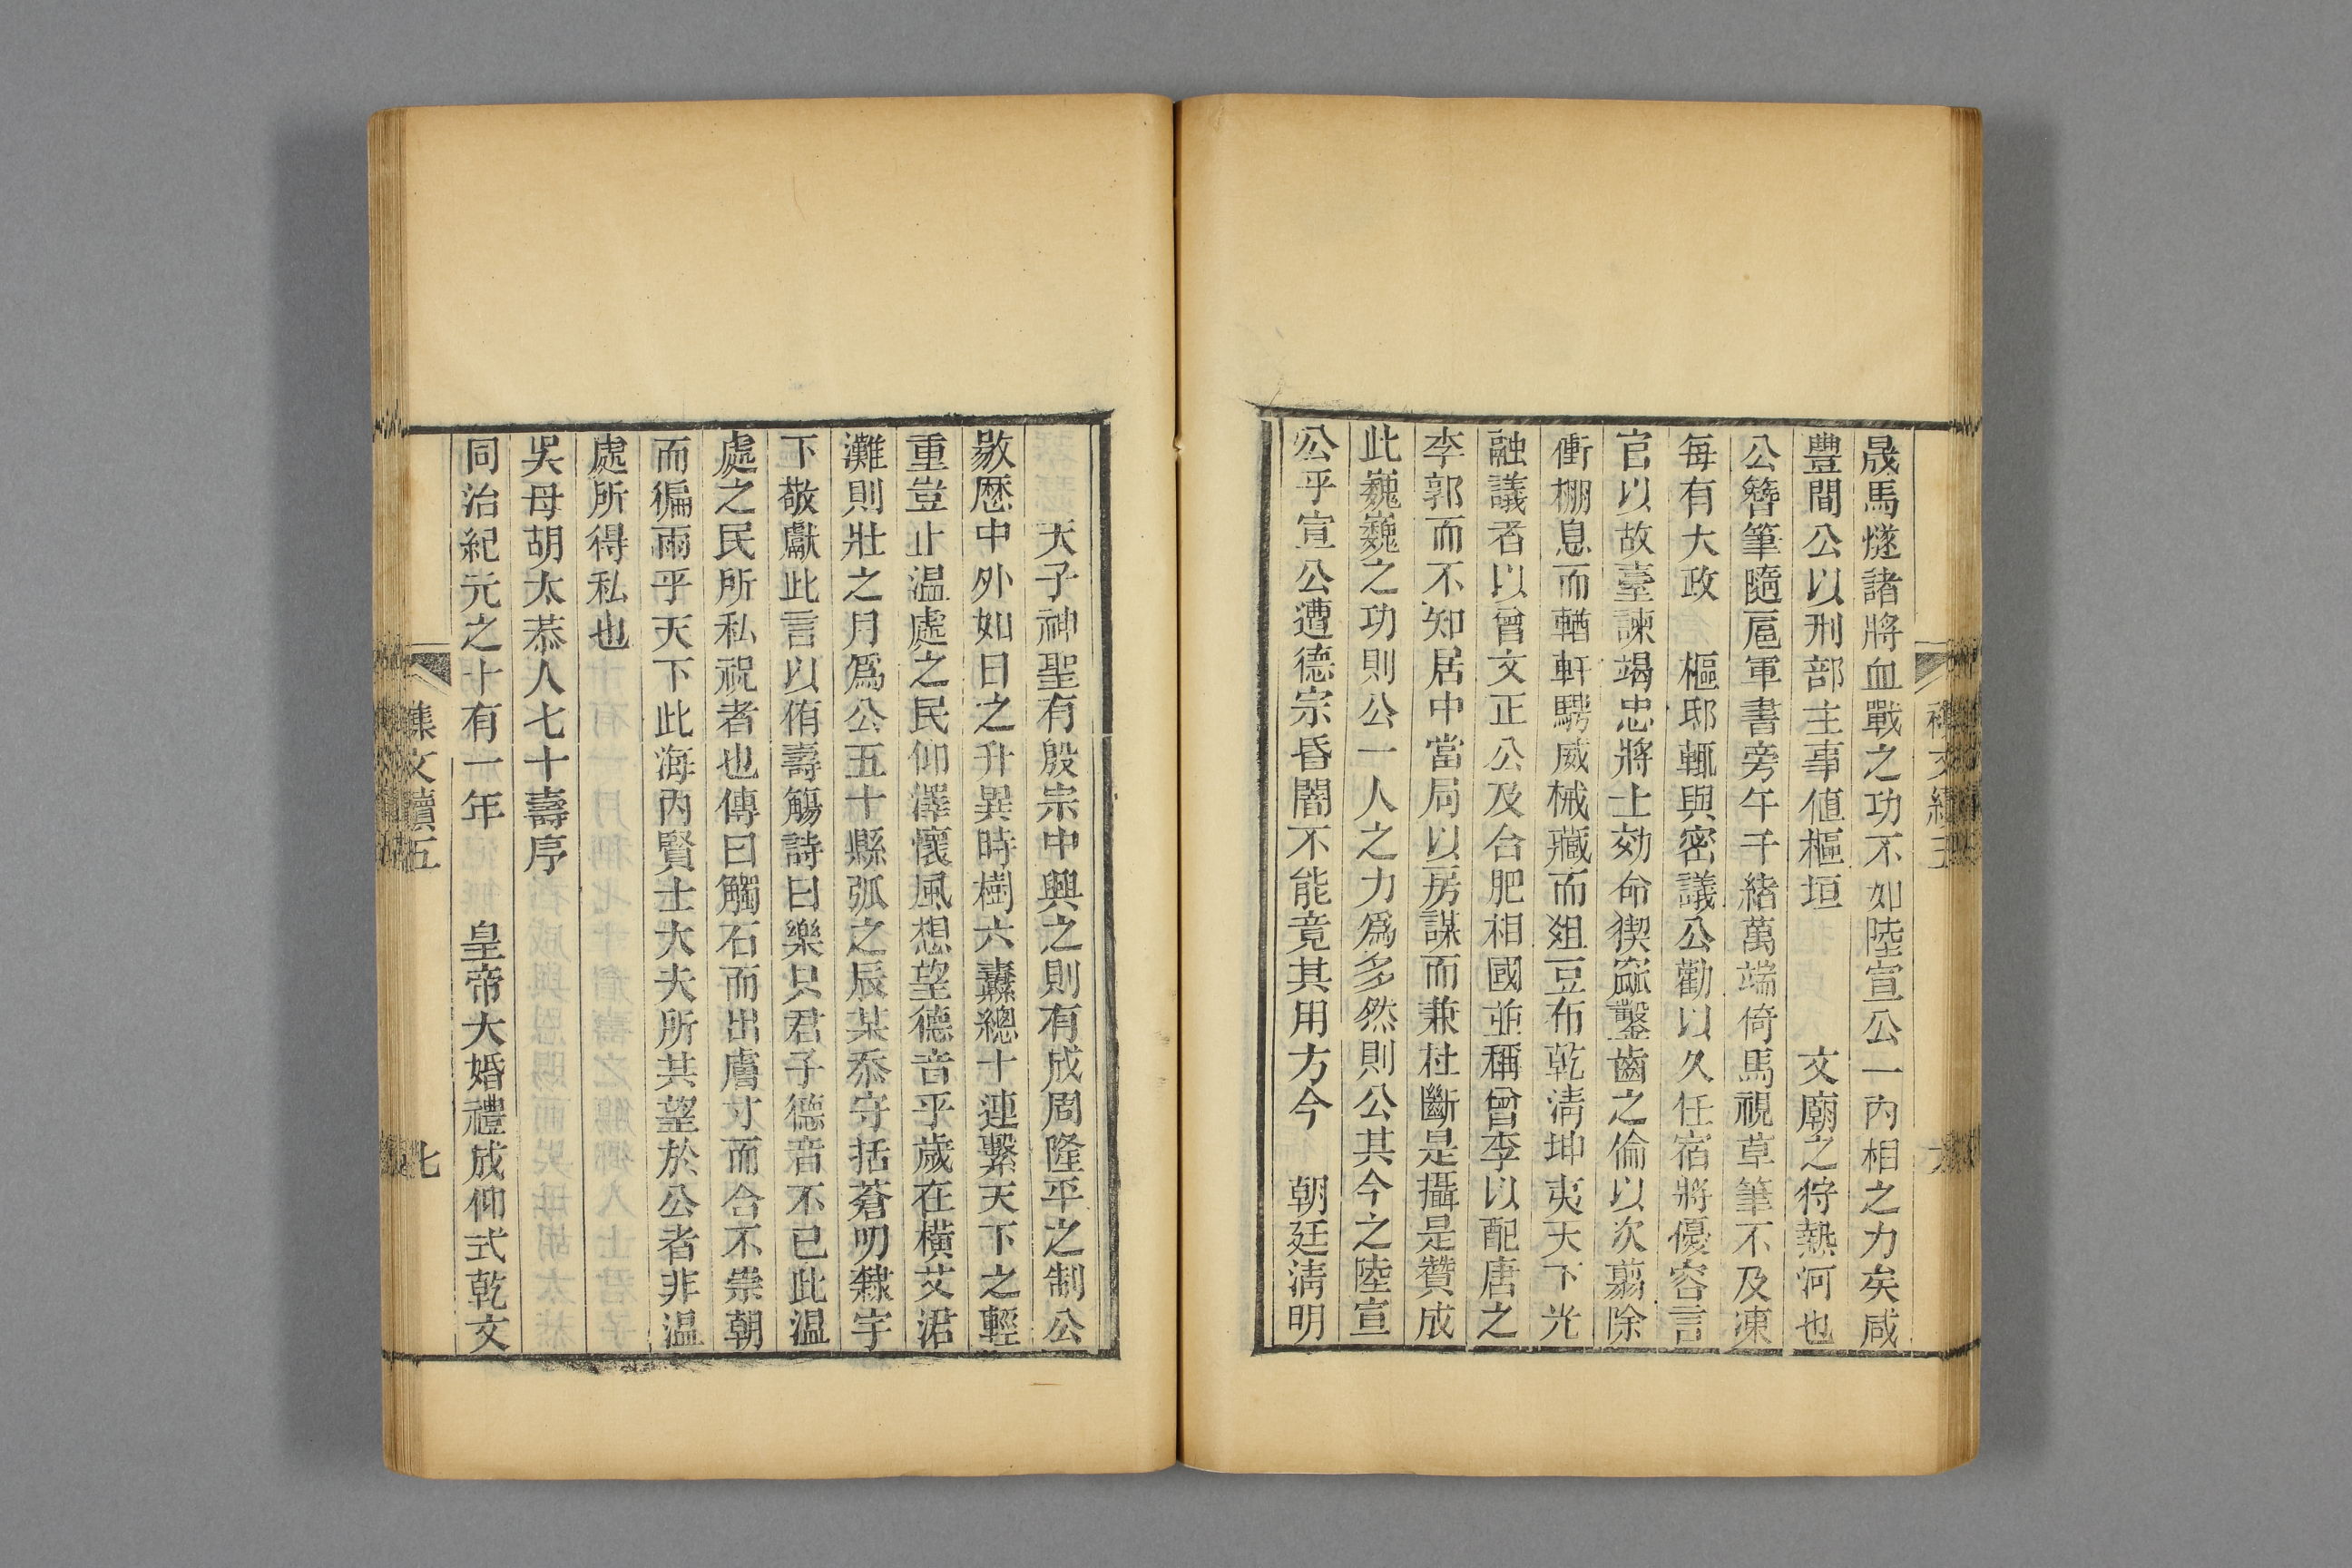 晟馬燧諸將血戰之功不如陸宣公一內相之力矣咸
豐間公以刑部主事値樞垣　文廟之狩熱河也
公簪筆隨扈軍書旁午千緒萬端倚馬視草筆不及凍
每有大政　樞邸輒與密議公勸以久任宿將優容言
官以故臺諫竭忠將士効命猰㺄鑿齒之倫以次翦除
衝棚息而輶軒騁威械藏而俎豆布乾淸坤夷天下光
融議者以曾文正公及合肥相國並稱曾李以配唐之
李郭而不知居中當局以房謀而兼杜斷是攝是贊成
此巍巍之功則公一人之力爲多然則公其今之陸宣
公乎宣公遭德宗昏闇不能竟其用方今　朝廷淸明
天子神聖有殷宗中興之則有成周隆平之制公
敭歷中外如日之升異時樹六纛總十連繫天下之輕
重豈止温處之民仰澤懷風想望德音乎歲在橫艾涒
灘則壯之月爲公五十縣弧之辰某忝守括蒼叨隸宇
下敬獻此言以侑壽觴詩曰樂只君子德音不已此温
處之民所私祝者也傳曰觸石而出膚寸而合不崇朝
而徧雨乎天下此海內賢士大夫所共望於公者非温
處所得私也
吳母胡太恭人七十壽序
同治紀元之十有一年　皇帝大婚禮成仰式乾文
集文續五
七